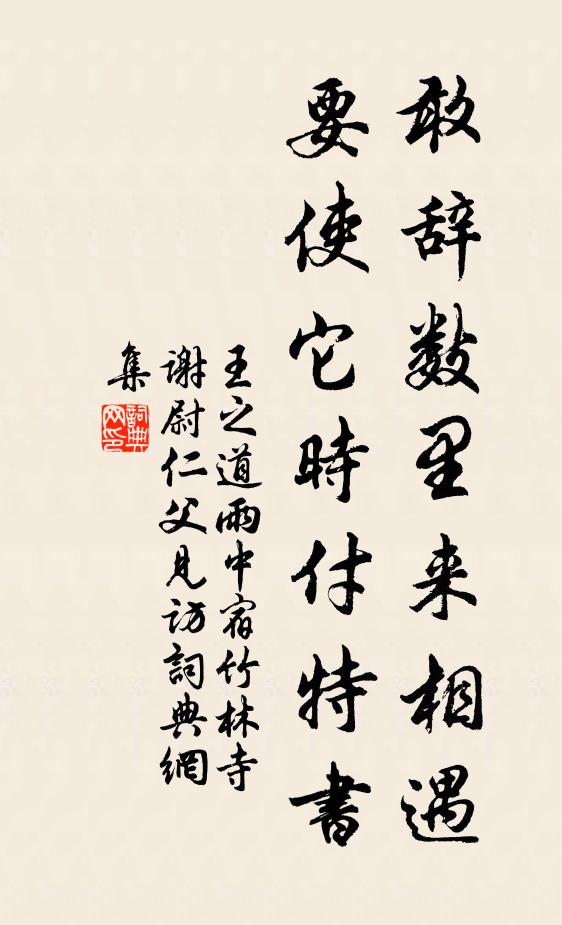 敢辞数里来相遇
要使它時付特書
王之道雨中宿竹林寺
谢尉仁父見访詞典網
集
詞典
网印